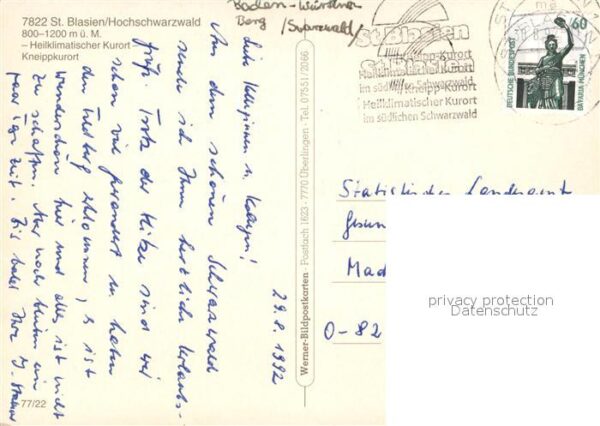 7822 St. Blasien/Hochschwarzwald
800–1200 m ü. M.
– Heilklimatischer Kurort –
Kneippkurort
Baden-Würt
Berg /Schwarzwald/
St. Blasien
Kneipp-Kurort
Heilklimatischer Kurort
im südlichen Schwarzwald
60
DEUTSCHE BUNDESPOST
BAVARIA MÜNCHEN
29.8.1992
Liebe Kolleginnen u. Kollegen!
Aus dem schönen Schwarzwald
sende ich Ihnen herzliche Urlaubs-
grüße. Trotz der Hitze sind wir
schon viel gewandert u. haben
den Feldberg erklommen, es ist
wunderschön hier und alles ist nicht
zu schaffen. Aber noch bleiben ein
paar Tage Zeit. Bis bald Ihre
Werner-Bildpostkarten · Postfach 1623 · 7770 Überlingen · Tel. 07551/2066
Statistisches Landesamt
Mad
O-82
privacy protection
Datenschutz
77/22